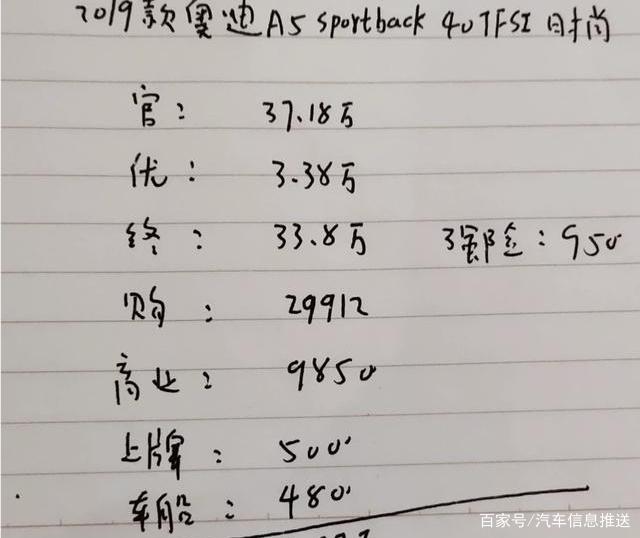 2019款奥迪A5 sportback 40TFSI 时尚
官： 37.18万
优： 3.38万
终： 33.8万 强险：950
购： 29912
商业： 9850
上牌： 500
车船： 480
百家号/汽车信息推送